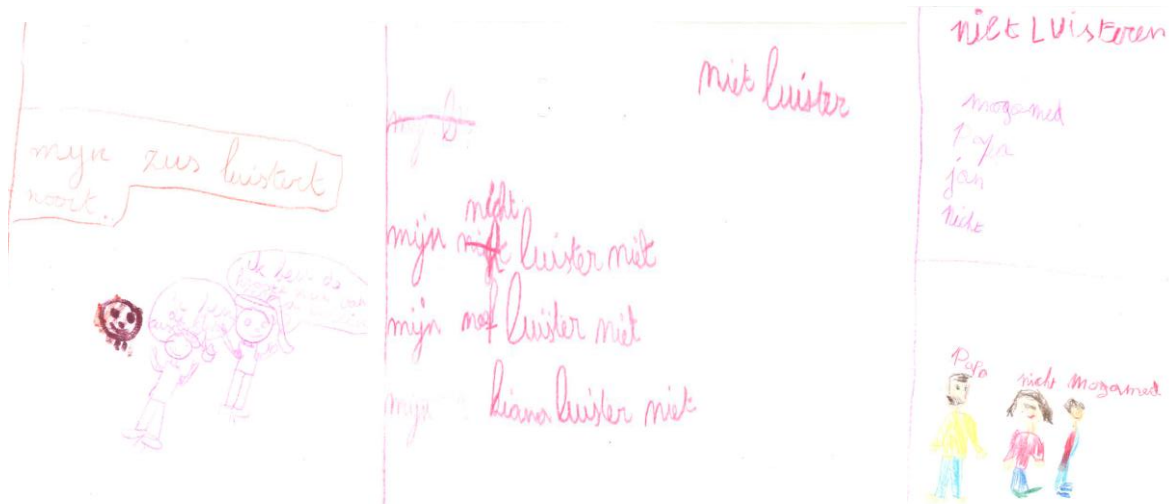 mijn zus luistert
nooit.
ik ben de
niet luister
nicht
mijn luister niet
mijn neef luister niet
mijn kiana luister niet
niet LUisteren
mogamed
Papa
jan
nicht
Papa
nicht
mogamed